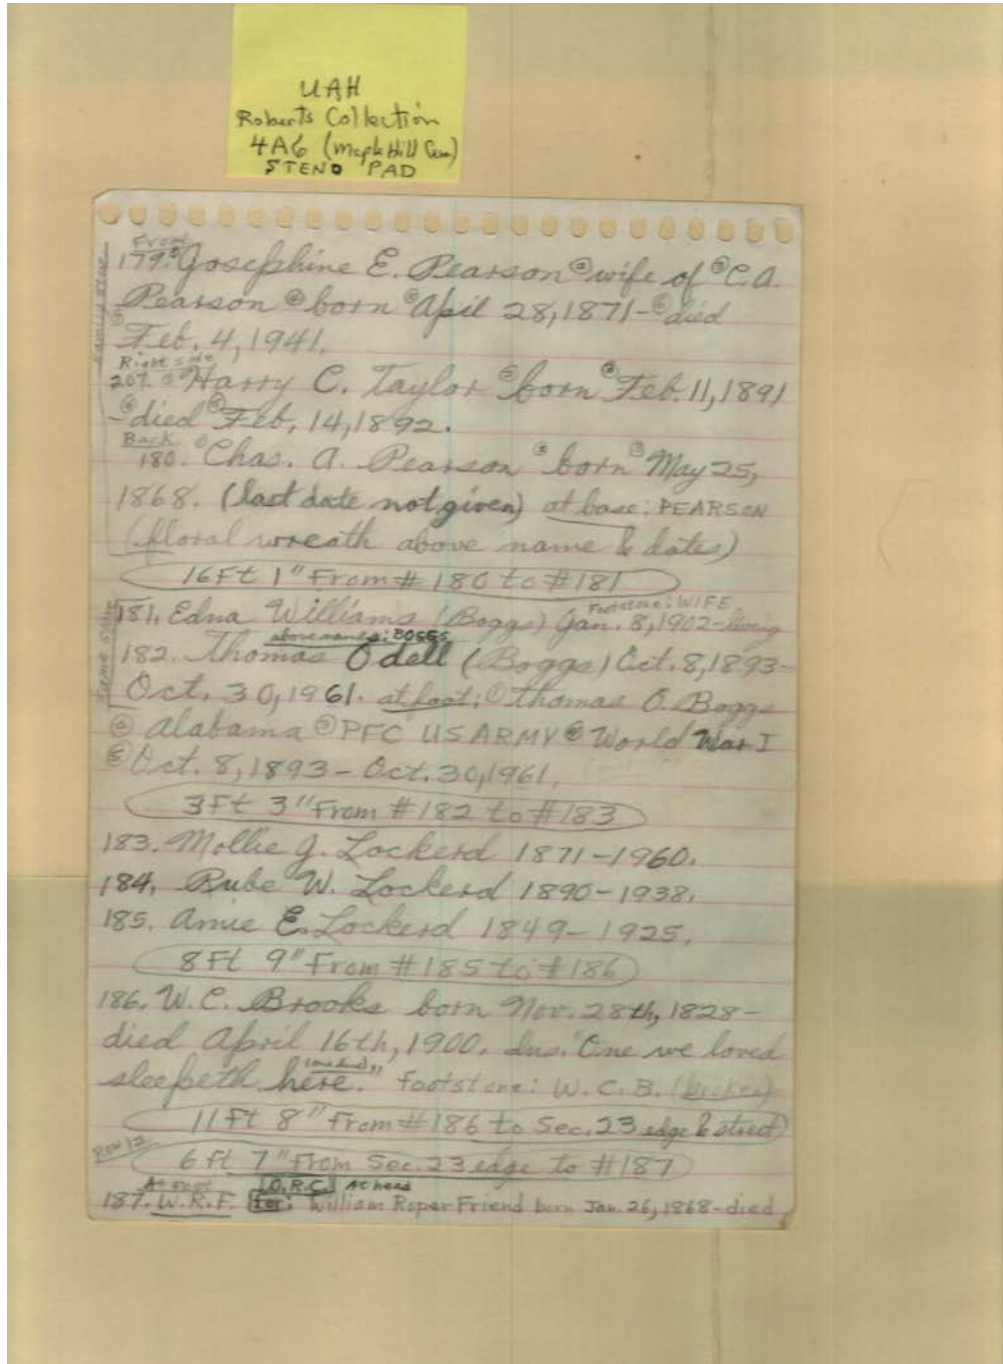 UAH
Roberts Collection
4A6 (Maple Hill Cem)
STENO PAD
Front
179. ① Josephine E. Pearson ② wife of ③ C.A.
Pearson ④ born ⑤ April 28, 1871 - ⑥ died
⑦ Feb. 4, 1941.
Right side
207. ① Harry C. Taylor ② born ③ Feb. 11, 1891
- ④ died ⑤ Feb. 14, 1892.
Back
180. ① Chas. A. Pearson ② born ③ May 25,
1868. (last date not given) at base: PEARSON
(floral wreath above name & dates)
16Ft 1" From # 180 to #181
Same Stone
Footstone: WIFE
181. Edna Williams (Boggs) Jan. 8, 1902 - living
above names: BOGGS
182. Thomas Odell (Boggs) Oct. 8, 1893 -
Oct. 30, 1961. at foot: ① Thomas O. Boggs
② Alabama ③ PFC US ARMY ④ World War I
⑤ Oct. 8, 1893 - Oct. 30, 1961.
3Ft 3" From #182 to #183
183. Mollie J. Lockerd 1871-1960.
184. Rube W. Lockerd 1890-1938.
185. Amie E. Lockerd 1849-1925.
8Ft 9" From #185 to #186
186. W.C. Brooks born Nov. 28th, 1828 -
died April 16th, 1900. Ins. "One we loved
sleepeth here." Footstone: W.C.B. (broken)
11Ft 8" From #186 to Sec. 23 edge & street)
Row 12
6 ft 7" From Sec. 23 edge to #187
At Foot O.R.C. At head
187. W.R.F. for: William Roper Friend born Jan. 26, 1868 - died